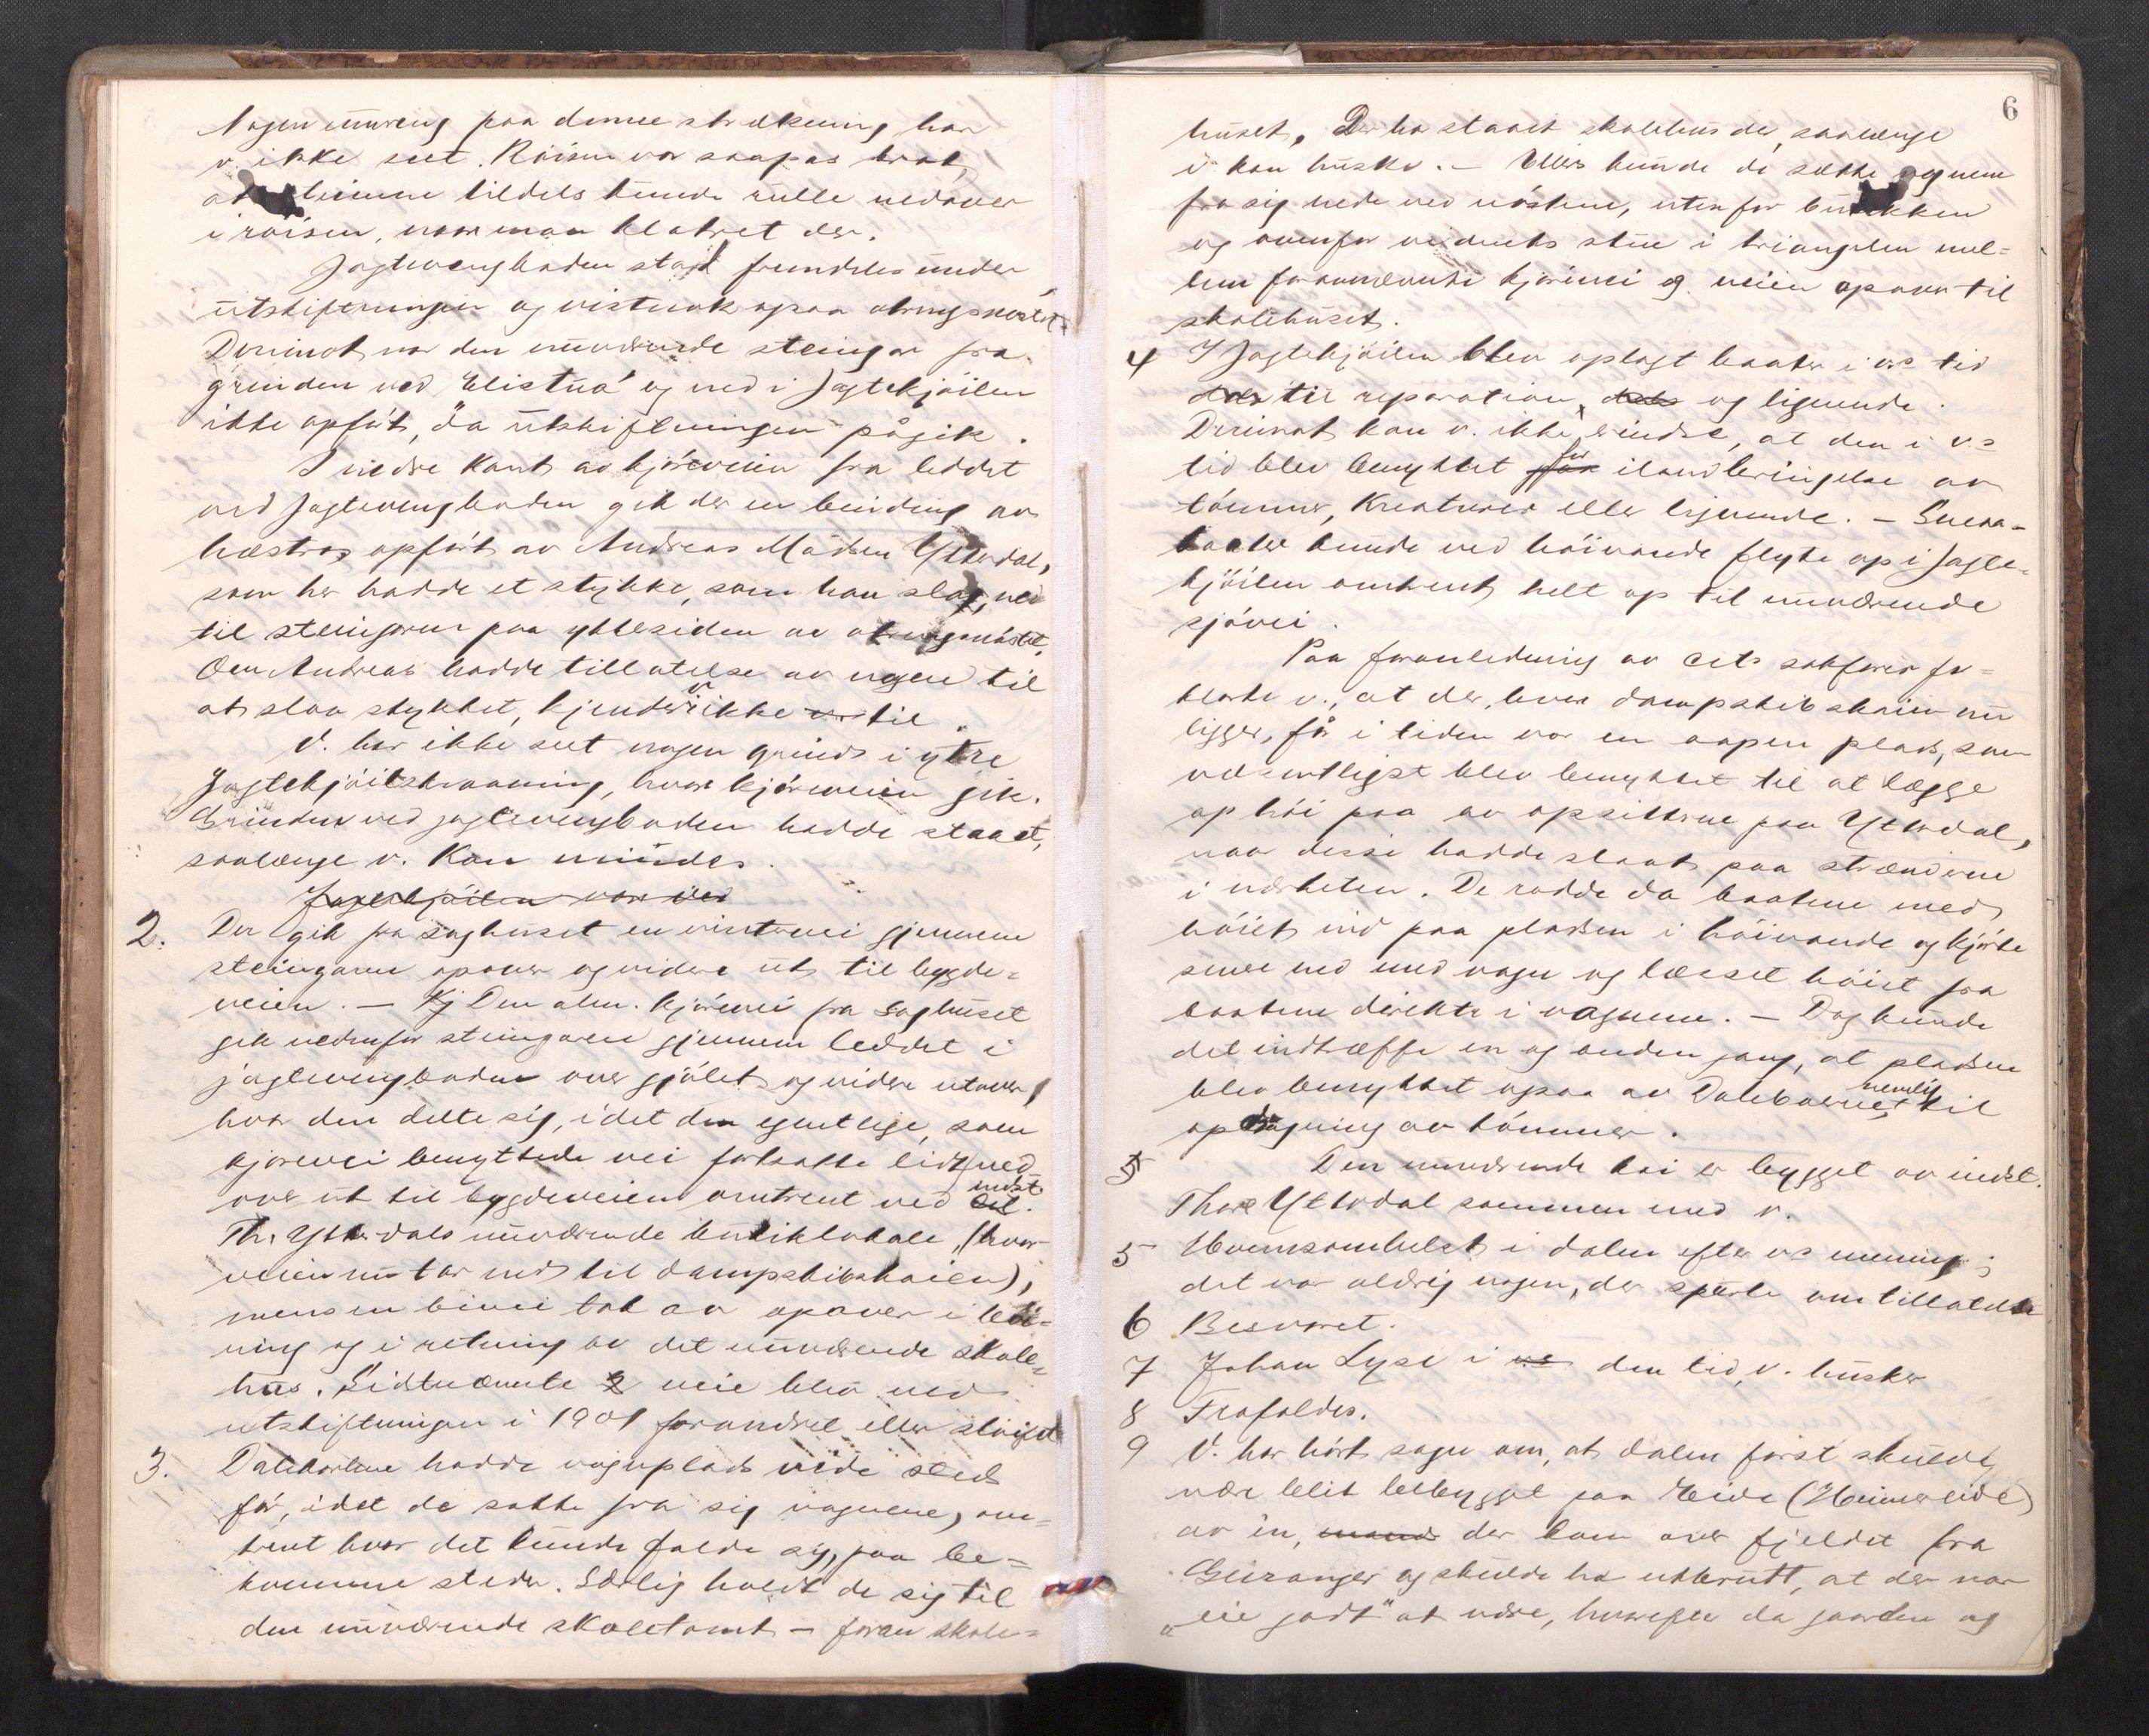 Nogen muring paa denne strækning har
v. ikke seet. Röisen var saapas brat,
at stenene tildels kunde rulle nedover
i röisen, naar man klatret der.
Jagtevengboden stod fremdeles under
utskiftningen og vistnok ogsaa
Derimot var den nuværende steingar fra
grinden ved Elistua og ned i Jagtekjöilen
ikke opfört, da utskiftningen pågik.
I nedre kant av kjöreveien fra leddet
ved Jagtevengboden gik der en beiding av
hæstras, opfört av Andreas Madsen Ytterdal,
som her hadde et stykke, som han slog, ned
til steingaren paa yttersiden av
Om Andreas hadde tillatelse av nogen til
at slaa stykket, kjender v. ikke til.
V. har ikke seet nogen grind i ytre
Jagtekjöilskraaning, hvor kjöreveien gik.
Grinden ved jagtevengboden hadde staaet,
saalænge v. kan mindes.
Jagtekjöilen var ved
2. Der gik fra saghuset en vintervei gjennem
steingaren opover og videre ut til bygde=
veien. — Kj Den alm. kjörevei fra saghuset
gik nedenfor steingaren gjennem leddet i
jagtevengboden over gjölet og videre utover,
hvor den delte sig, idet den egentlige, som
kjörevei benyttede vei fortsatte lidt ned=
over ut til bygdeveien omtrent ved indst.
Th. Ytterdals nuværende butiklokale, (hvor
veien nu tar ned til dampskibskaien),
mens en bivei tok av opover i
ning og i retning av det nuværende skole=
hus. Sidstnævnte 2 veie blev ved
utskiftningen i 1901 forandret eller slöifet
3. Dalebörene hadde vognplads vide sted
för, idet de satte fra sig vognene, om=
trent hvor det kunde falde sig, paa be=
kvemme steder. Særlig holdt de sig til
den nuværende skoletomt — foran skole=
6
huset. Der ha staaet skolehus der, saalænge
v. kan huske. — Ellers kunde de sætte vognene
fra sig nede ved nöstene, utenfor butikken
og ovenfor veidrets stue i triangelen mel=
lem forannævnte kjörevei og veien opover til
skolehuset.
4 I Jagtekjöilen blev oplagt baater i v.s tid
dels til reparation, dels og lignende.
Derimot kan v. ikke erindre, at den i v.s
tid blev benyttet for til ilandbringelse av
tömmer, kreaturer eller lignende. — Smaa=
baater kunde ved höivande flyte op i Jagte=
kjöilen omtrent helt op til nuværende
sjövei.
Paa foranledning av cits sakförer for=
klarte v., at der, hvor dampskibskaien nu
ligger, för i tiden var en aapen plads, som
væsentligst blev benyttet til at lægge
op höi paa av opsitterne paa Ytterdal,
naar disse hadde slaat paa strændene
i nærheten. De rodde da baatene med
höiet ind paa pladsen i höivande og kjörte
senere ned med vogn og læsset höiet fra
baatene direkte i vognene. — Dog kunde
det indtræffe en og anden gang, at pladsen
blev benyttet ogsaa av Dalebörene, nemlig til
oplagning av tömmer.
5 Den nuværende kai er bygget av indst.
Thore Ytterdal sammen med v.
5 Hvemsomhelst i dalen efter v.s mening;
det var aldrig nogen, der spurte om tillatelse
6 Besvaret.
7 Johan Lyse i v.s den tid, v. husker
8 Frafaldes.
9 V. har hört sagn om, at dalen först skulde
være blit bebygget paa Eide (Heimereide)
av en, mand der kom over fjeldet fra
Geiranger og skulde ha utbrutt, at der var
„eie godt" at være, hvorefter da gaarden og